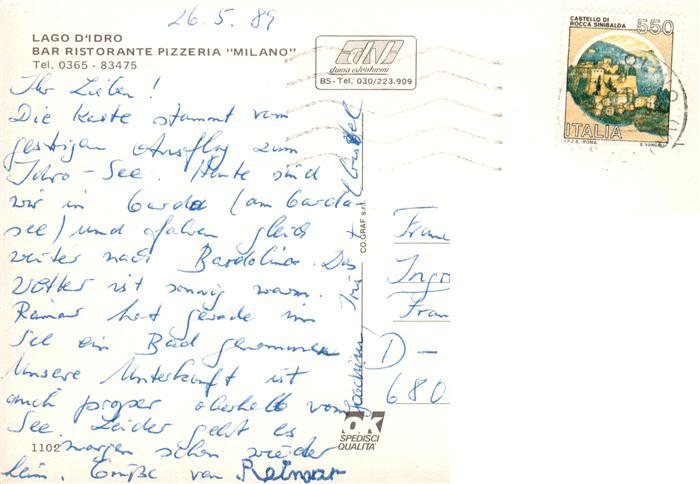 26.5.89
LAGO D'IDRO
BAR RISTORANTE PIZZERIA "MILANO"
Tel. 0365 - 83475
BS-Tel. 030/223.909
CASTELLO DI
ROCCA SINIBALDA
550
ITALIA
I.P.Z.S. - ROMA
Ihr Lieben!
Die Karte stammt vom
gestrigen Ausflug zum
Idro-See. Heute sind
wir in Garda (am Garda
see) und fahren gleich
weiter nach Bardolino. Das
Wetter ist sonnig warm.
Reimar hat gerade im
See ein Bad genommen
Unsere Unterkunft ist
auch proper oberhalb vom
See. Leider geht es
morgen schon wieder
heim. Grüße von Reimar
Joachim Iris + Christel
CO.GRAF. s.r.l.
Frau
Ingr
Fran
D-
680
1102
OK
SPEDISCI
QUALITA'